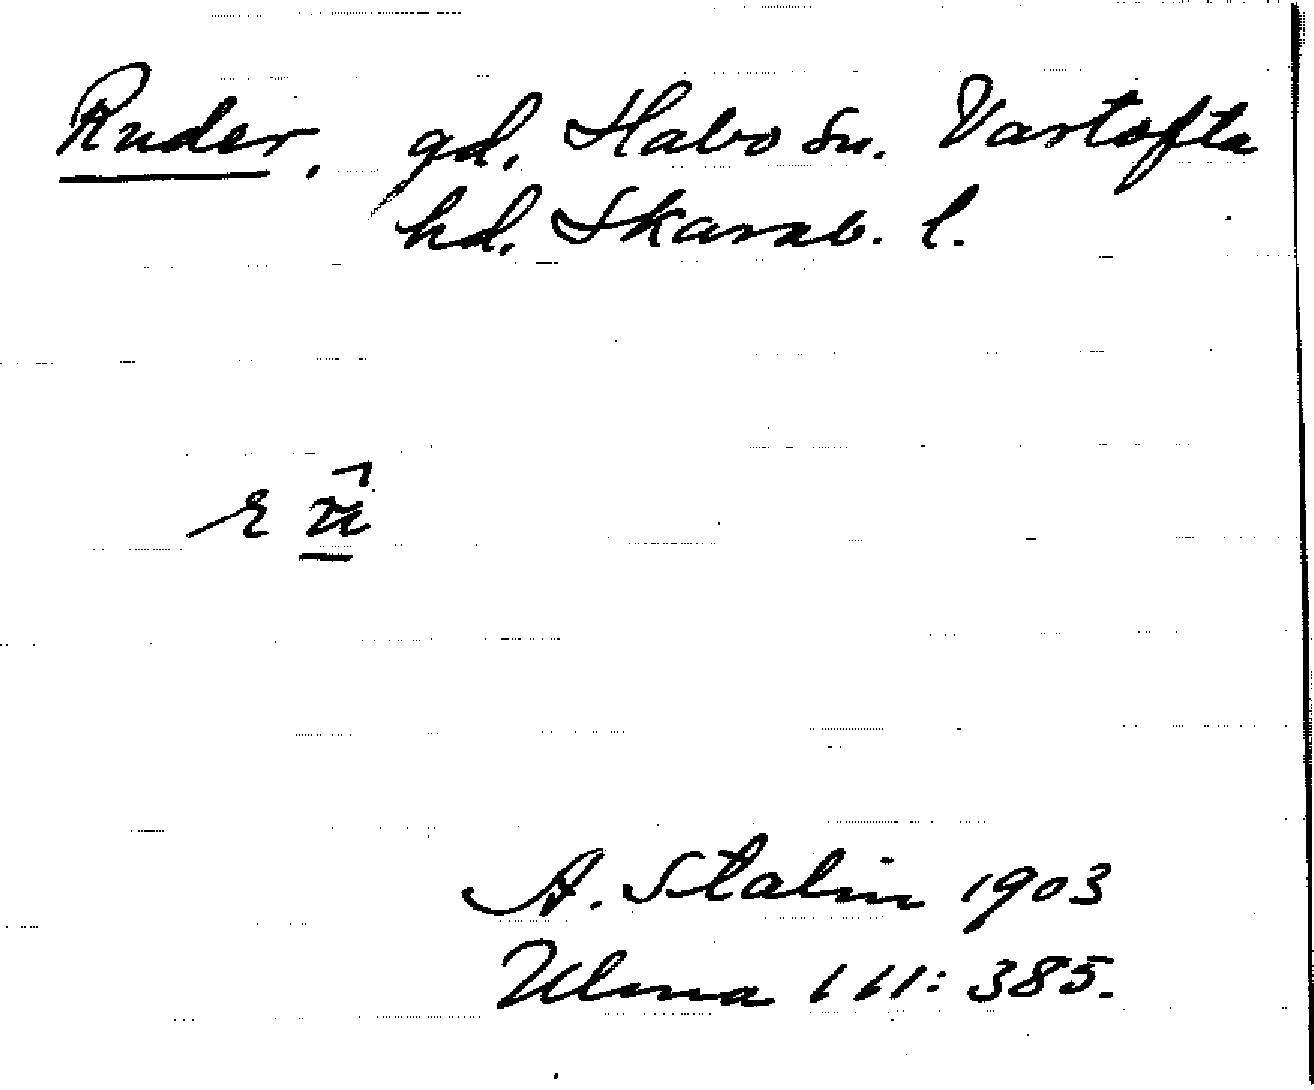 Ruder, gd. Habo sn. Vartofta
hd. Skarab. l.
A. Stalin 1903
Ulma 111: 385.